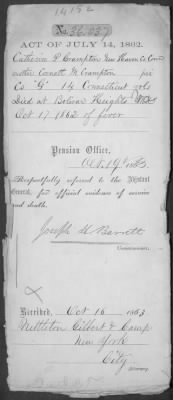 No. 36.037
ACT OF JULY 14, 1862.
Catherine D. Crampton New Haven Co Conn
mother Connett M Crampton
Co "G" 14 Connecticut vols
Died at Bolivar Heights
Oct 17 1862 of fever
Pension Office,
Respectfully referred to the Adjutant
General, for official evidence of service
and death.
Joseph H Barrett
Commissioner.
Received, Oct 16 1863
Nettleton Gilbert & Camp
New York
City
Attorney.